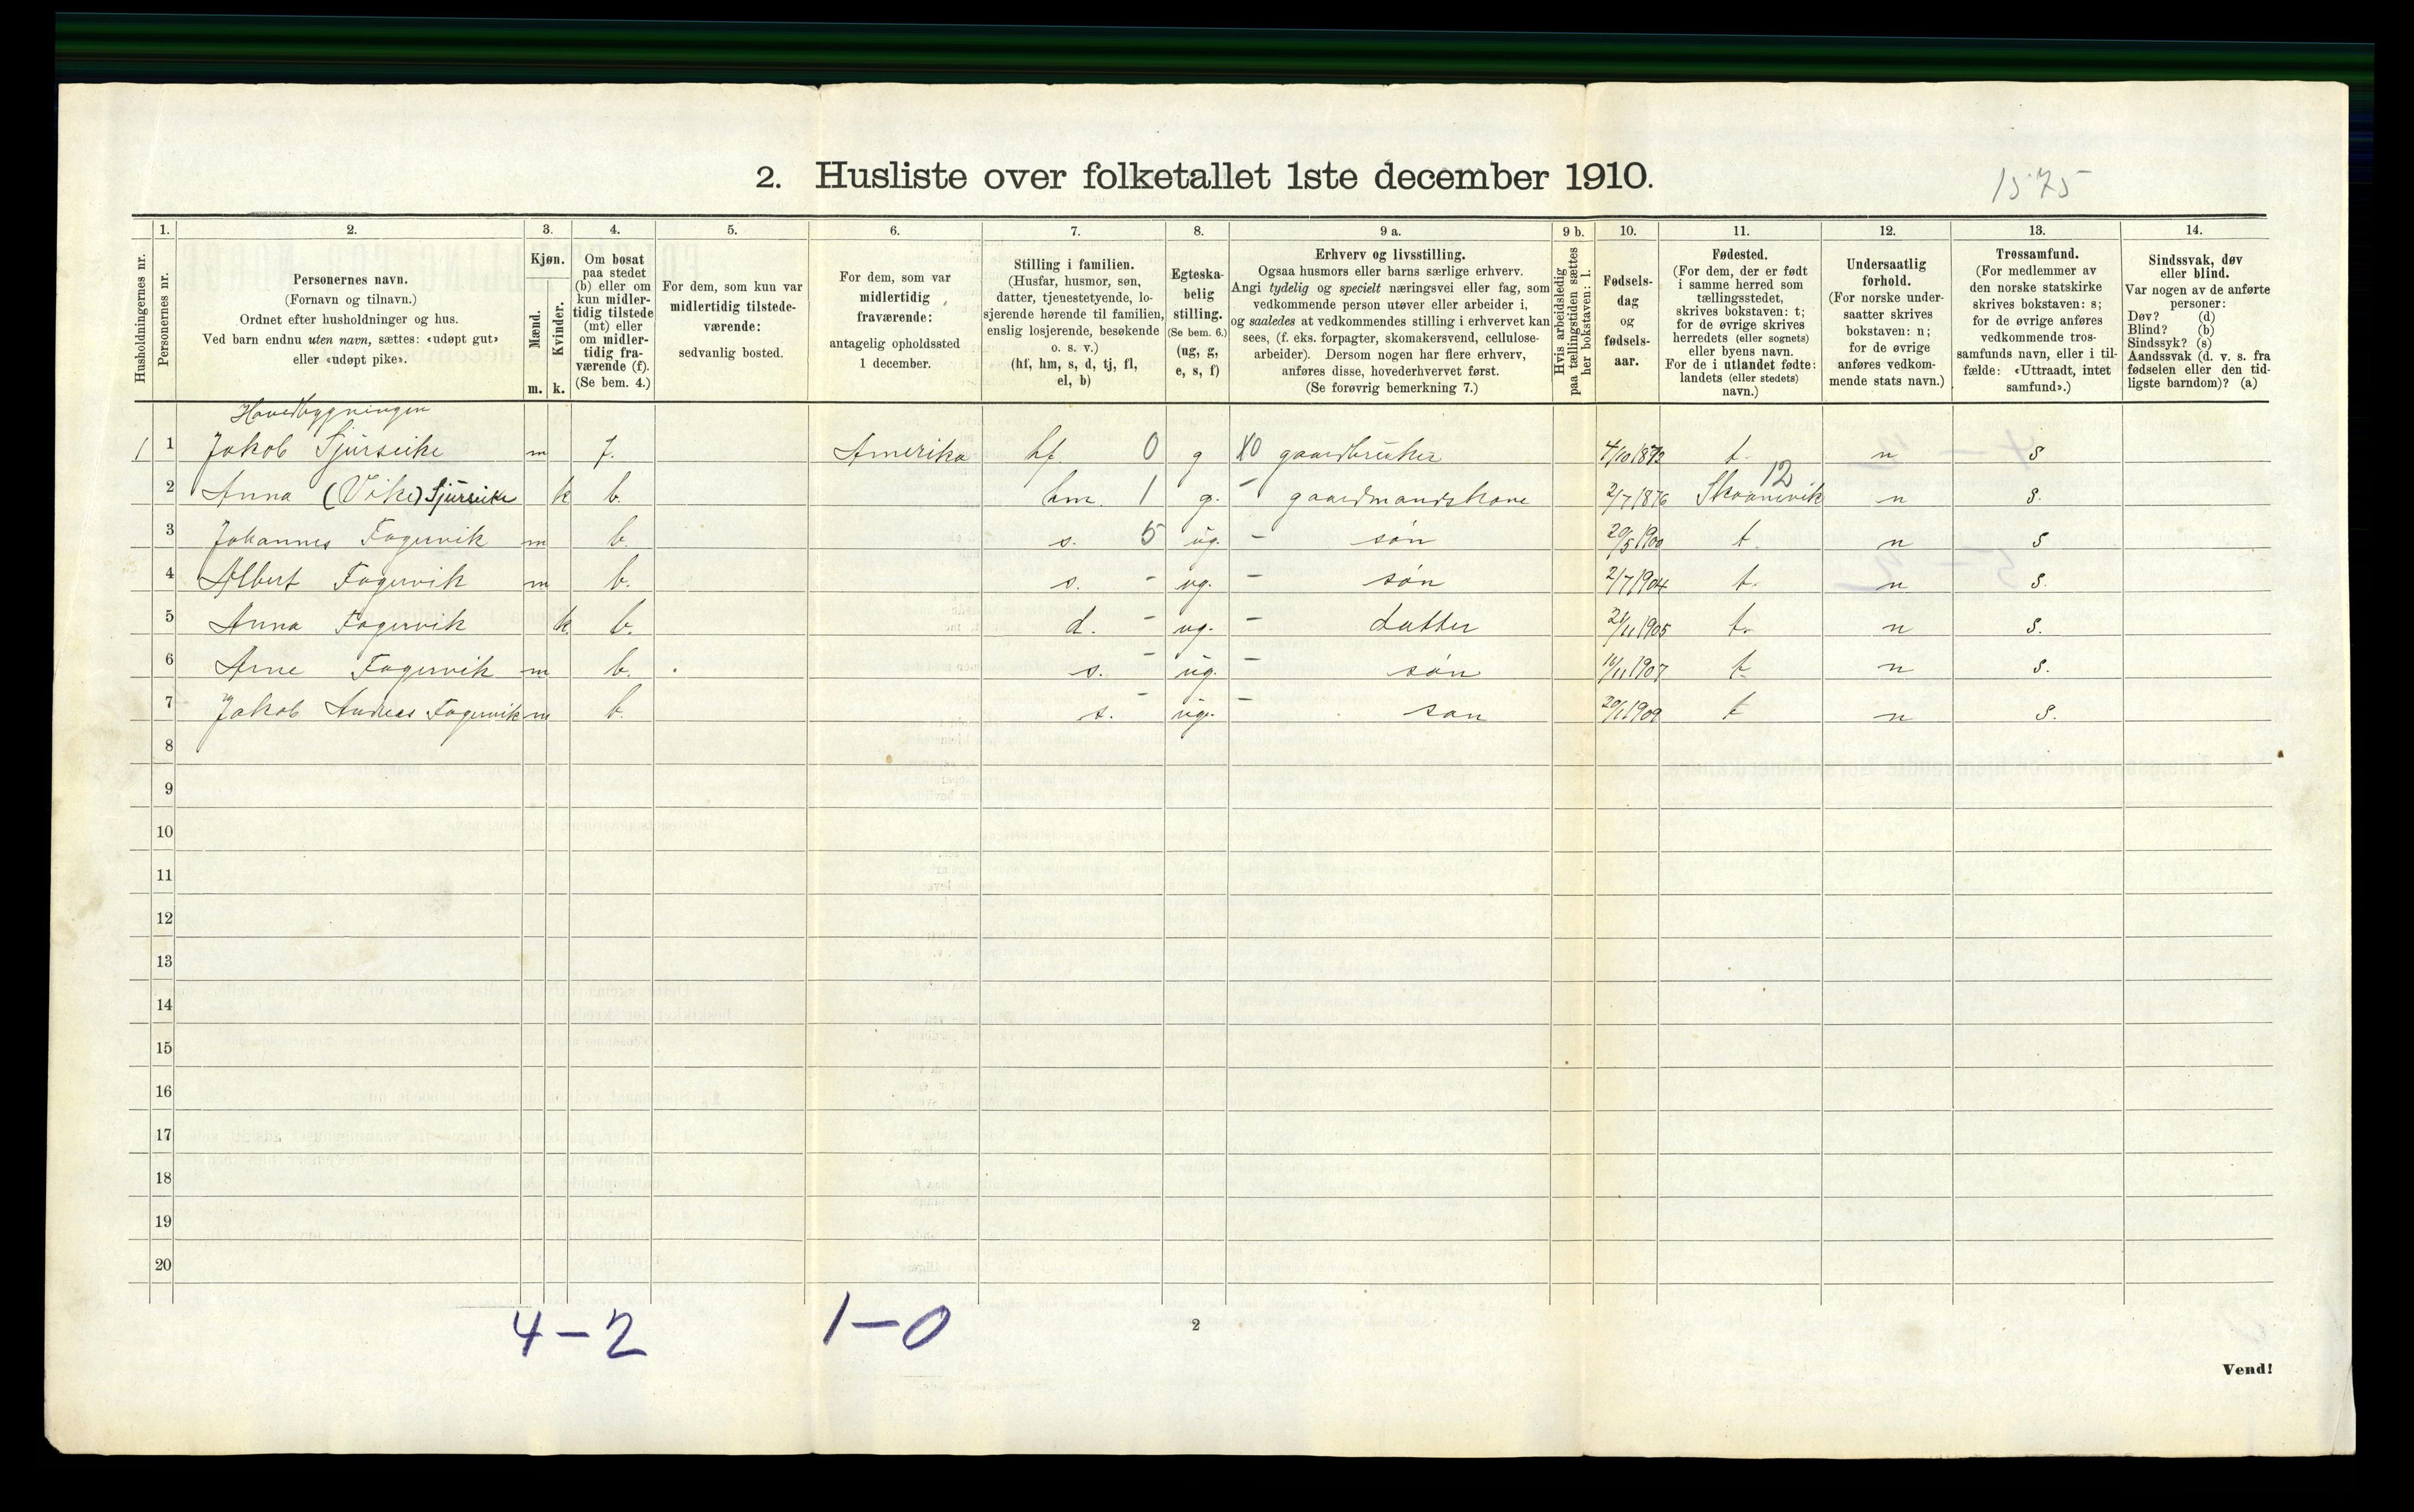 2. Husliste over folketallet 1ste december 1910.
1575
1. 2. 3. 4. 5. 6. 7. 8. 9 a. 9 b. 10. 11. 12. 13. 14.
Husholdningernes nr.
Personernes nr.
Personernes navn.
(Fornavn og tilnavn.)
Ordnet efter husholdninger og hus.
Ved barn endnu uten navn, sættes: «udøpt gut»
eller «udøpt pike».
Kjøn.
Mænd.
Kvinder.
m. k.
Om bosat
paa stedet
(b) eller om
kun midler-
tidig tilstede
(mt) eller
om midler-
tidig fra-
værende (f).
(Se bem. 4.)
For dem, som kun var
midlertidig tilstede-
værende:
sedvanlig bosted.
For dem, som var
midlertidig
fraværende:
antagelig opholdssted
1 december.
Stilling i familien.
(Husfar, husmor, søn,
datter, tjenestetyende, lo-
sjerende hørende til familien,
enslig losjerende, besøkende
o. s. v.)
(hf, hm, s, d, tj, fl,
el, b)
Egteska-
belig
stilling.
(Se bem. 6.)
(ug, g,
e, s, f)
Erhverv og livsstilling.
Ogsaa husmors eller barns særlige erhverv.
Angi tydelig og specielt næringsvei eller fag, som
vedkommende person utøver eller arbeider i,
og saaledes at vedkommendes stilling i erhvervet kan
sees, (f. eks. forpagter, skomakersvend, cellulose-
arbeider). Dersom nogen har flere erhverv,
anføres disse, hovederhvervet først.
(Se forøvrig bemerkning 7.)
Hvis arbeidsledig
paa tællingstiden sættes
her bokstaven: l.
Fødsels-
dag
og
fødsels-
aar.
Fødested.
(For dem, der er født
i samme herred som
tællingsstedet,
skrives bokstaven: t;
for de øvrige skrives
herredets (eller sognets)
eller byens navn.
For de i utlandet fødte:
landets (eller stedets)
navn.)
Undersaatlig
forhold.
(For norske under-
saatter skrives
bokstaven: n;
for de øvrige
anføres vedkom-
mende stats navn.)
Trossamfund.
(For medlemmer av
den norske statskirke
skrives bokstaven: s;
for de øvrige anføres
vedkommende tros-
samfunds navn, eller i til-
fælde: «Uttraadt, intet
samfund».)
Sindssvak, døv
eller blind.
Var nogen av de anførte
personer:
Døv? (d)
Blind? (b)
Sindssyk? (s)
Aandssvak (d. v. s. fra
fødselen eller den tid-
ligste barndom)? (a)
Hovedbygningen
1 1 Jakob Sjurseike m f. Amerika hf. 0 g X0 gaardbruker 4/10 1873 t. n s
12
2 Anna (Vike) Sjurseike k b. hm. 1 g. - gaardmandskone 2/7 1876 Skaanevik n s.
3 Johannes Fagervik m b. s. 5 ug. - søn 20/5 1900 t. n s
4 Albert Fagervik m b. s. - ug. - søn 2/7 1904 t. n s.
5 Anna Fagervik k b. d. - ug. - datter 21/11 1905 t. n s.
6 Arne Fagervik m b. s. - ug. - søn 16/11 1907 t n s.
7 Jakob Andreas Fagervik m b. s. - ug. - søn 20/1 1909 t n s.
8
9
10
11
12
13
14
15
16
17
18
19
20
4-2 1-0
2
Vend!